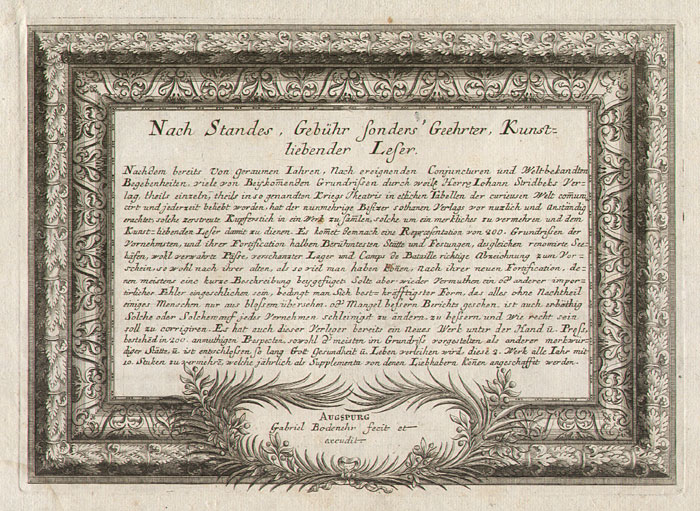 Nach Standes, Gebühr sonders Geehrter, Kunst=
liebender Leser.
Nachdem bereits Von geraumen Iahren, Nach ereignenden Conjuncturen und Weltbekandten
Begebenheiten, viele von Beÿkom̄enden Grundrißen durch weilꝭ Herrn Iohann Stridbeks Ver=
lag, theils einzeln, theils in so genandten Kriegs Theatris in etlichen Tabellen der curieusen Welt comuni
cirt und jederzeit beliebt worden, hat der nunmehrige Besizer sothanen Verlags vor nuzlich und Anständig
erachtet, solche zerstreute Kupferstich in ein Werk zu samlen, solche um ein merkliches zu vermehren und dem
Kunst=liebenden Leser damit zu dienen. Es kom̄et demnach eine Repræsentation von 200. Grundrißen der
Vornehmsten, und ihrer Fortification halben Berühmtesten Stätte und Festungen, desgleichen renomirte See=
häfen, wohl verwahrte Päße, verschanzter Lager und Camps de Bataille richtige Abzeichnung zum Vor=
schein, so wohl nach ihrer alten, als so viel man haben kön̄en, nach ihrer neuen Fortification, de=
nen meistens eine kurze Beschreibung beygefüget. Solte aber wieder Vermuthen ein oder anderer impor=
tirlicher Fehler eingeschlichen sein, bedingt man sich best=kräfftigster Form, das alles ohne Nachtheil
einiges Menschen nur aus bloßem übersehn, oder Mangel beßern Berichts geschehen, ist auch erbietig
Solche oder Solchen auf jedes Vernehmen schleinigst zu ändern, zu beßern, und Wie recht sein
soll zu corrigiren. Es hat auch dieser Verleger bereits ein Neues Werk unter der Hand u. Preß,
bestehend in 200. anmuthigen Prospecten, sowohl der meisten im Grundriß vorgestelten als anderer merkwür=
diger Stätte, u. ist entschloßen so lang Gott Gesundheit u. Leben verleihen wird, diese 2. Werk alle Iahr mit
10. Stuken zu vermehrē, welche jährlich als Supplementa von denen Liebhabern Kön̄en angeschafft werden.
AUGSPURG
Gabriel Bodenehr fecit et
excudit